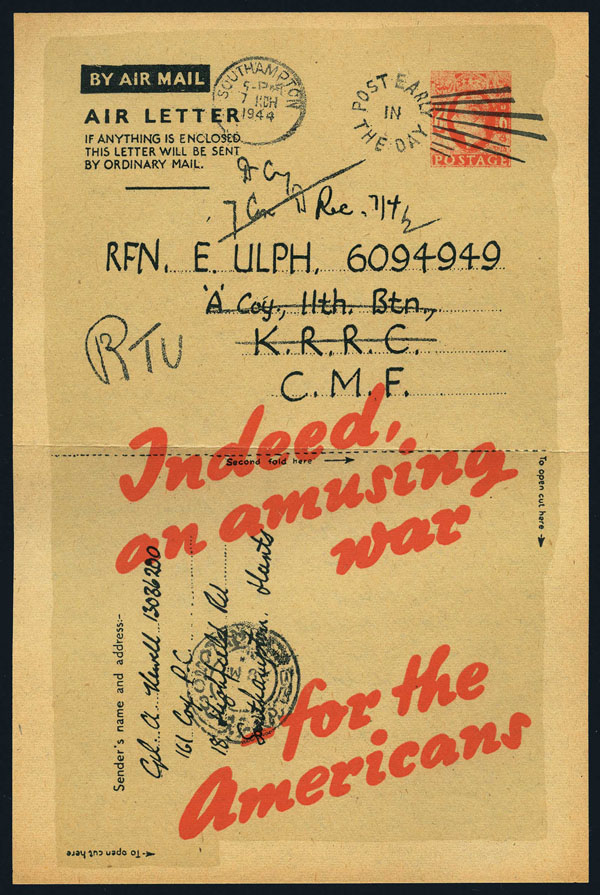 BY AIR MAIL
AIR LETTER
IF ANYTHING IS ENCLOSED
THIS LETTER WILL BE SENT
BY ORDINARY MAIL.
SOUTHAMPTON
5-PM
7 MCH
1944
POST EARLY
IN
THE DAY
POSTAGE
D Coy
Rec. 7/4/
RFN. E. ULPH, 6094949
'A' Coy., 11th. Btn.,
K.R.R.C.
C.M.F.
RTU
Indeed,
Second fold here
an amusing
war
To open cut here
Sender's name and address:-
Cpl. A. 13086200
161 Coy P.C
18 Highfield Rd
Southampton. Hants
for the
Americans
To open cut here